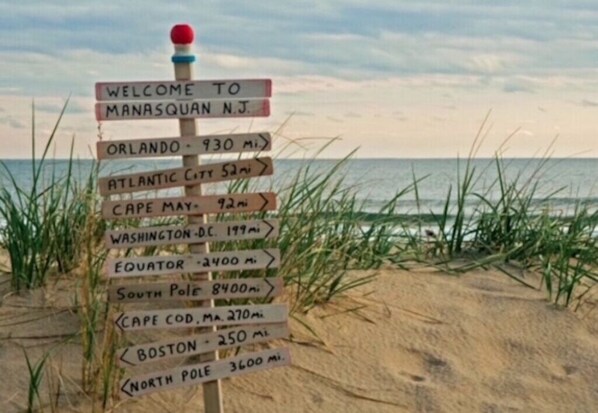 WELCOME TO
MANASQUAN N.J.
ORLANDO - 930 mi.
ATLANTIC CITY 52mi
CAPE MAY - 92mi
WASHINGTON-D.C. 199mi
EQUATOR - 2400 mi.
SOUTH POLE 8400mi
CAPE COD, MA. 270mi.
BOSTON - 250 mi
NORTH POLE 3600 mi.